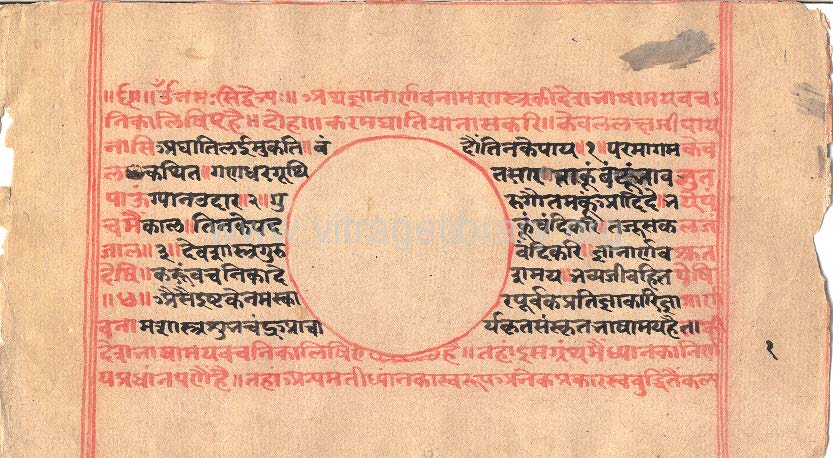 ॥ ६० ॥ ॐ नमः सिद्धेभ्यः ॥ अथ ज्ञानार्णवनामशास्त्रकी देशभाषामयवच
निका लिखिये है ॥ दोहा ॥ करम घातिया नास करि ॥ केवललक्ष्मी पाय
नासि अघाति लई मुकति ॥ वंदौं तिनके पाय ॥ १ ॥ परमागम केव
ल कथित ॥ गणधर गूंथित सार ॥ ताकूं बंदूं भाव जुत
पाऊं ग्यान उदार ॥ २ ॥ गुरु गौतमकूं आदि दे ॥ नये पं
चमैकाल ॥ तिनके पद कूं वंदि करि ॥ तजू सकल ज
जाल ॥ ३ ॥ देव शास्त्र गुरु वंदि करि ॥ ज्ञानार्णव कृत
देषि ॥ करूं वचनिका देशमय ॥ भव्यजीव हित पेषि
॥ ४ ॥ अैसैं इष्टकै नमस्कारपूर्वक प्रतिज्ञा करि ज्ञानार्ण
वनामशास्त्र शुभचंद्र आचार्यकृत संस्कृतभाषामय है ताकी
देशभाषामय वचनिका लिखिए है ॥ तहां इस ग्रंथमैं ध्यानका निर्ण
य प्रधानपणैं है ॥ तहां अन्यमती ध्यानका स्वरूप अनेक प्रकार स्वबुद्धितै कल
१